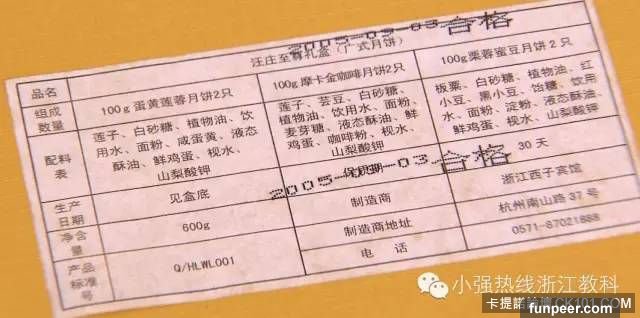 2005-09-03合格
品名
汪庄至尊礼盒（广式月饼）
组成
数量
100g 蛋黄莲蓉月饼2只
100g 摩卡金咖啡月饼2只
100g栗蓉蜜豆月饼 2 只
配料
表
莲子、白砂糖、植物油、饮
用水、面粉、咸蛋黄、液态
酥油、鲜鸡蛋、枧水、
山梨酸钾
莲子、芸豆、白砂糖、
植物油、饮用水、面粉、
麦芽糖、液态酥油、鲜
鸡蛋、咖啡粉、枧水、
山梨酸钾
板栗、白砂糖、植物油、红
小豆、黑小豆、饴糖、饮用
水、面粉、淀粉、液态酥油、
鲜鸡蛋、枧水、山梨酸钾
生产
日期
见盒底
保质期
30 天
2005-09-03合格
净含
量
600g
制造商
浙江西子宾馆
制造商地址
杭州南山路 37 号
产品
标准号
Q/HLWL001
电 话
0571-87021888
小强热线浙江教科
卡提諾論壇CK101.COM
funpeer.com